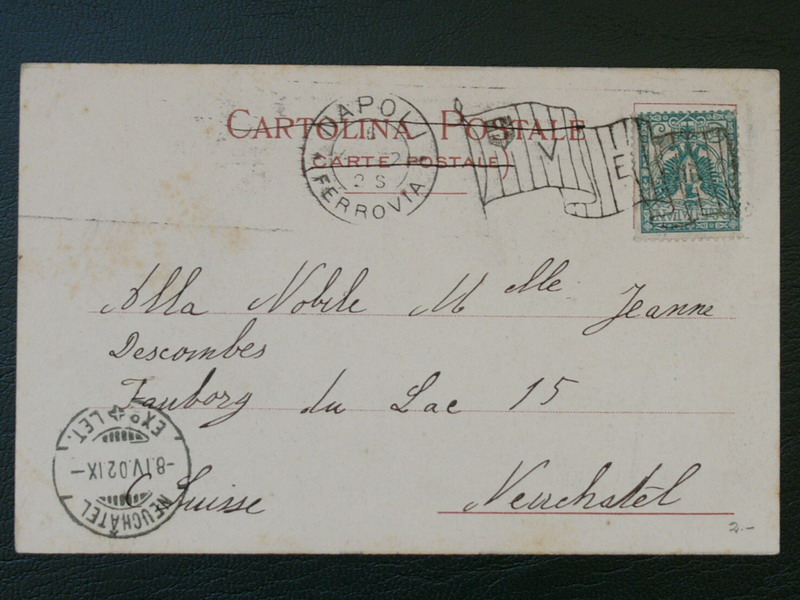 CARTOLINA POSTALE
(CARTE POSTALE)
NAPOLI
FERROVIA
V E
Alla Nobile Mlle Jeanne
Descombes
Fauborg du Lac 15
Suisse Neuchatél
EXP. LET.
-8.IV.02.IX-
NEUCHÂTEL
2.-